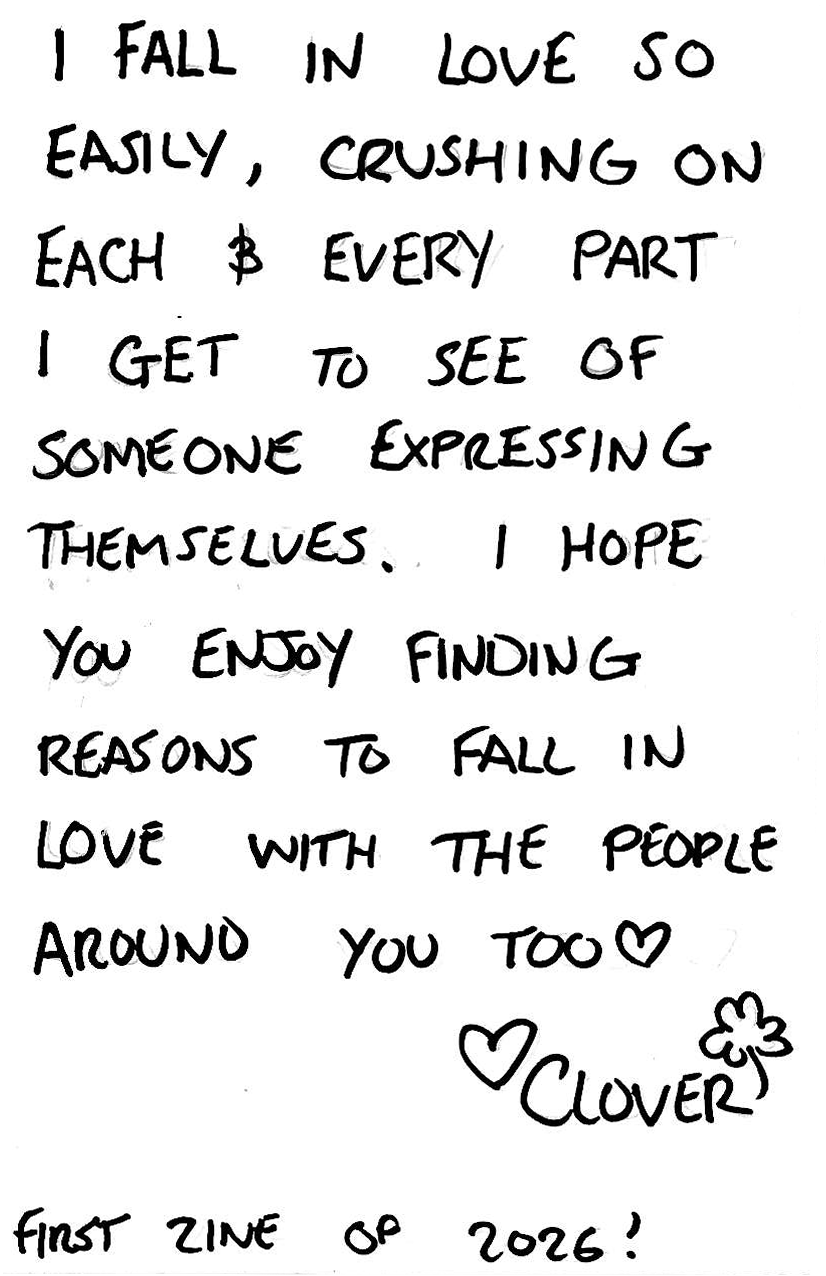 I FALL IN LOVE SO
EASILY, CRUSHING ON
EACH & EVERY PART
I GET TO SEE OF
SOMEONE EXPRESSING
THEMSELVES. I HOPE
YOU ENJOY FINDING
REASONS TO FALL IN
LOVE WITH THE PEOPLE
AROUND YOU TOO♡
♡CLOVER
FIRST ZINE OF 2026!